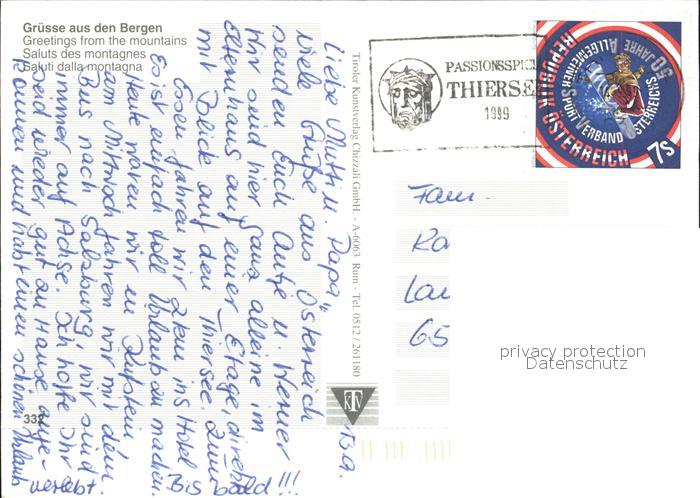 Grüsse aus den Bergen
Greetings from the mountains
Saluts des montagnes
Saluti dalla montagna
Liebe Mutti u. Papa,
viele Grüße aus Österreich
senden Euch Antje u. Werner
Wir sind hier ganz alleine im
Elternhaus auf einer Etage, direkt
mit Blick auf den Thiersee. Zum
Essen fahren wir 2km ins Hotel
Es ist einfach toll Urlaub zu machen.
Heute waren wir in Kufstein
am Mittwoch fahren wir mit dem
Bus nach Salzburg, wir sind
immer auf Achse. Ich hoffe Ihr
seid wieder gut zu Hause ange-
kommen und habt einen schönen Urlaub
verlebt.
Bis bald!!!
332
Tiroler Kunstverlag Chizzali GmbH. - A-6063 Rum - Tel. 0512 / 261180
KTV
PASSIONSSPIE
THIERSE
1999
50 JAHRE ALLGEMEINER SPORTVERBAND ÖSTERREICHS
REPUBLIK ÖSTERREICH
7S
Fam.
Ra
Lau
65
privacy protection
Datenschutz